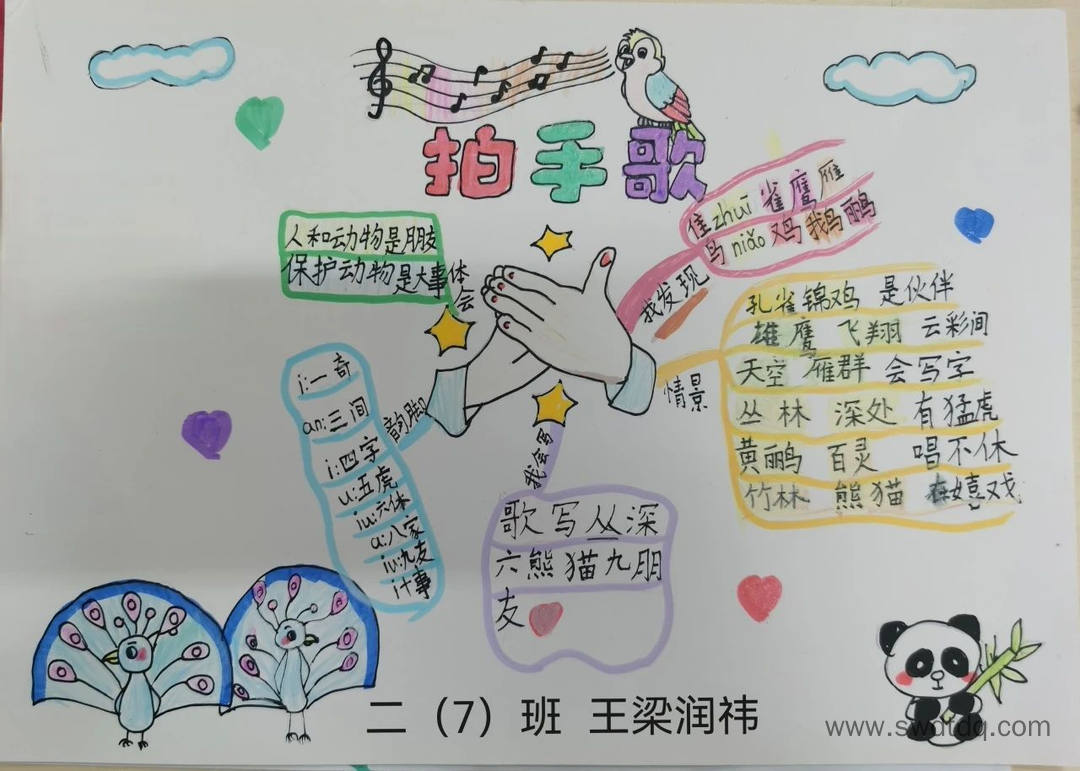 拍手歌
人和动物是朋友
保护动物是大事
体会
隹zhuī 雀鹰雁
鸟niǎo 鸡鹅鹂
我发现
孔雀锦鸡 是伙伴
雄鹰 飞翔 云彩间
天空 雁群 会写字
丛林 深处 有猛虎
黄鹂 百灵 唱不休
竹林 熊猫 在嬉戏
情景
i:一 奇
an:三 间
i:四字
u:五虎
iu:六休
a:八家
iu:九友
i十事
韵脚
我会写
歌写丛深
六熊猫九朋
友
二（7）班 王梁润祎
www.swdtdq.com